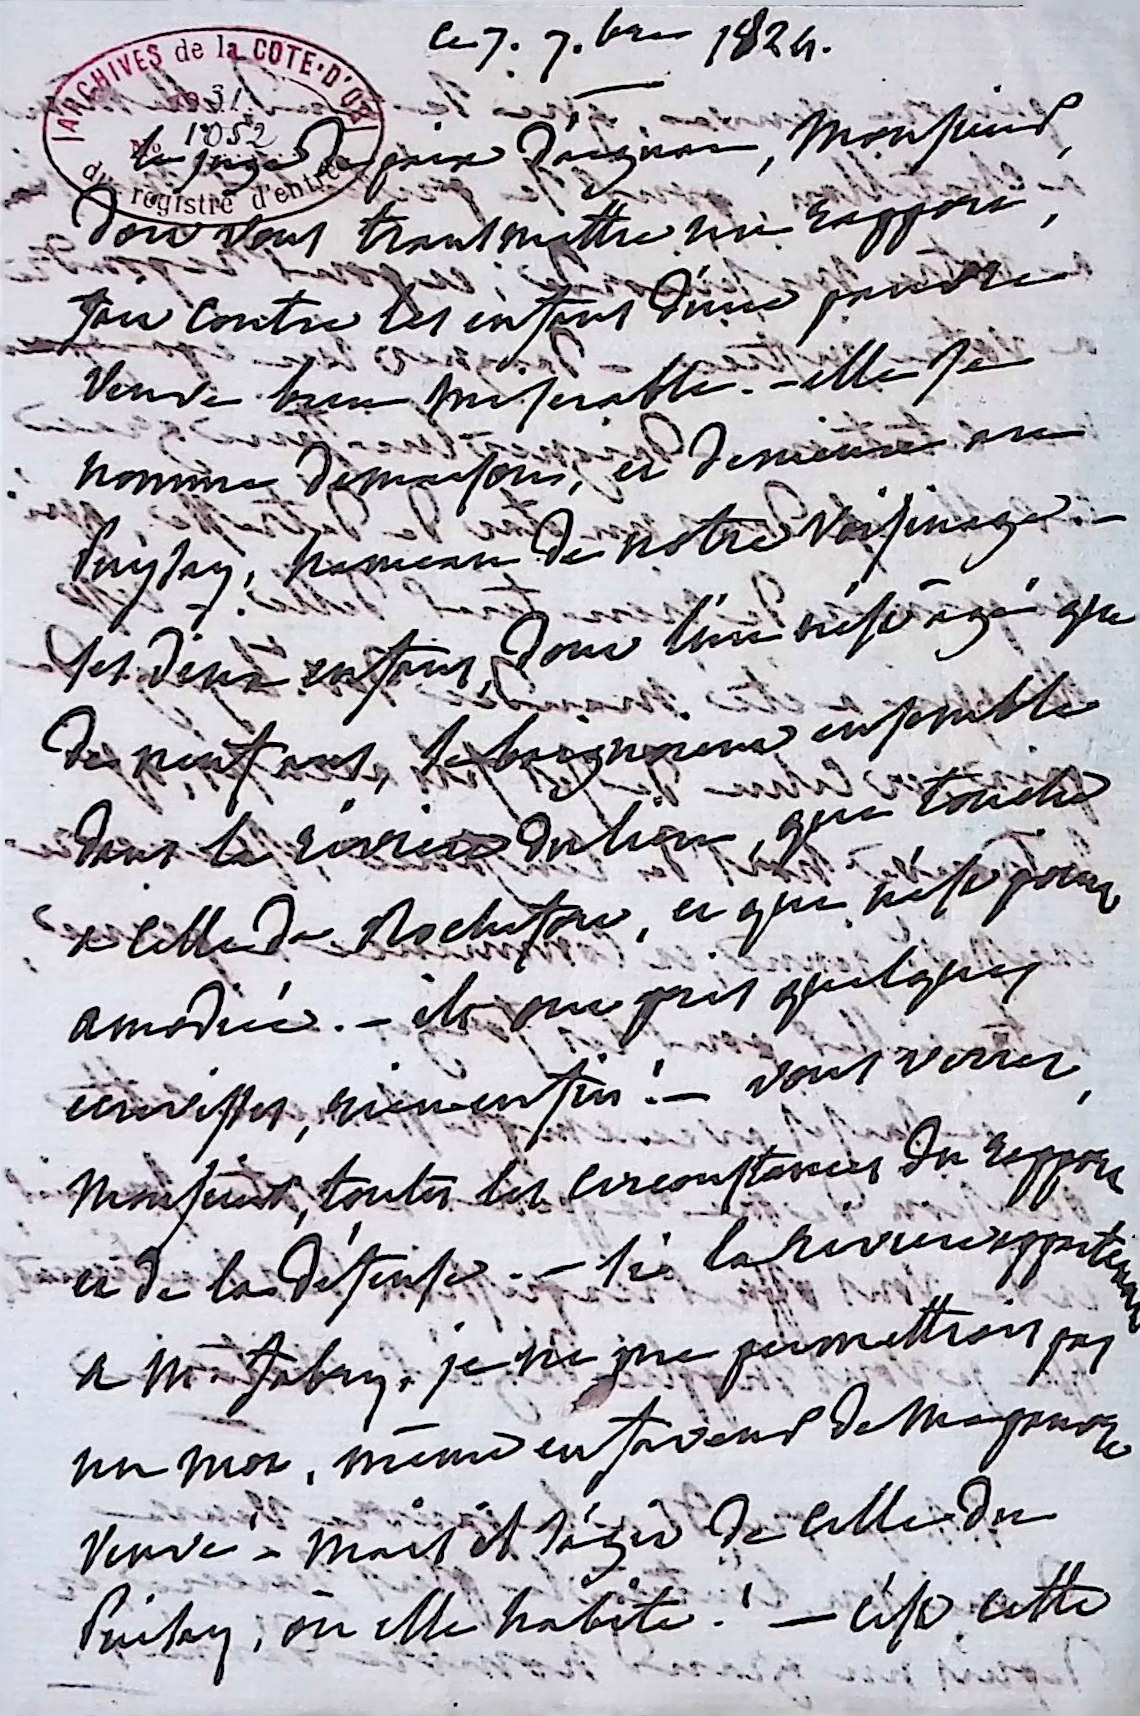 ce 7. 7.bre 1824.
ARCHIVES de la COTE-D'OR
31
No 1052
du registre d'entrée
le juge de paix d'aignai, Monsieur,
doit vous transmettre un rapport,
fait contre les enfans d'une pauvre
veuve bien miserable. - elle se
nomme demaisons, et demeure au
Puijsay, hameau de notre voisinage -
ses deux enfans, dont l'un n'est agé que
de neuf ans, se baignoient ensemble
dans la riviere du lieu, qui touche
a celle de Rochefort, et qui n'est point
amodiée. - ils ont pris quelques
ecrevisses, rien enfin! - vous verrez,
Monsieur, toutes les circonstances du rapport
et de la défense. - si la riviere appartenait
a Mr. fabry, je ne me permettrois pas
un mot, même en faveur de ma pauvre
veuve - mais il s'agit de celle du
Puisay, ou elle habite! - c'est cette